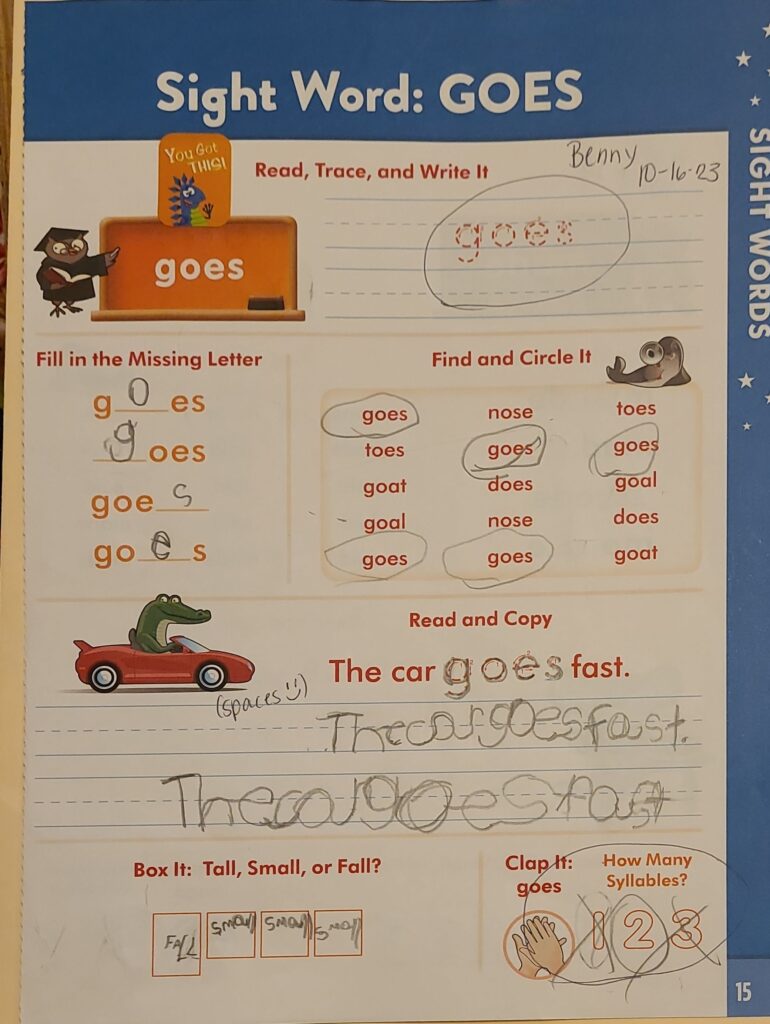 Sight Word: GOES
SIGHT WORDS
You Got
THIS!
Read, Trace, and Write It
Benny
10-16-23
goes
goes
Fill in the Missing Letter
goes
goes
goes
goes
Find and Circle It
goes nose toes
toes goes goes
goat does goal
goal nose does
goes goes goat
Read and Copy
The car goes fast.
(spaces :))
Thecargoesfast.
Thecargoesfast
Box It: Tall, Small, or Fall?
Clap It: How Many
goes Syllables?
1 2 3
15